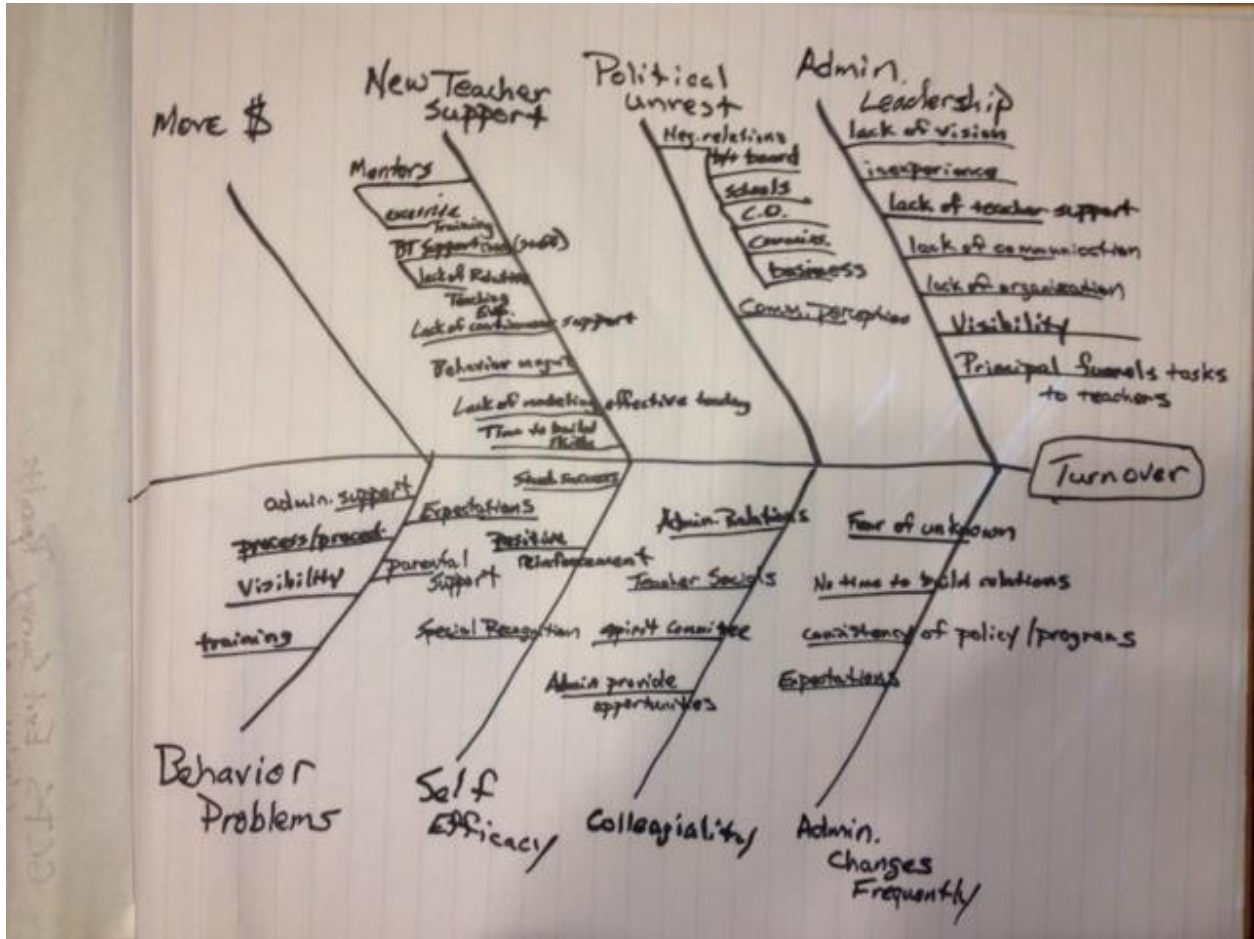 Move $
New Teacher
Support
Mentors
Training
BT Support
lack of
Teaching
Lack of support
Behavior mgmt
Lack of modeling effective
Time to build
skills
Political
Unrest
Neg. relations
btw board
schools
C.O.
business
Comm. perception
Admin.
Leadership
lack of vision
inexperience
lack of teacher support
lack of communication
lack of organization
Visibility
Principal funnels tasks
to teachers
Turnover
admin. support
process/proced
Visibility
training
Expectations
parental
support
Behavior
Problems
Stud. success
Positive
reinforcement
Special Recognition
Self
Efficacy
Admin. Relations
Teacher Socials
spirit Committee
Admin provide
opportunities
Collegiality
Fear of unknown
No time to build relations
consistency of policy/programs
Expectations
Admin.
Changes
Frequently